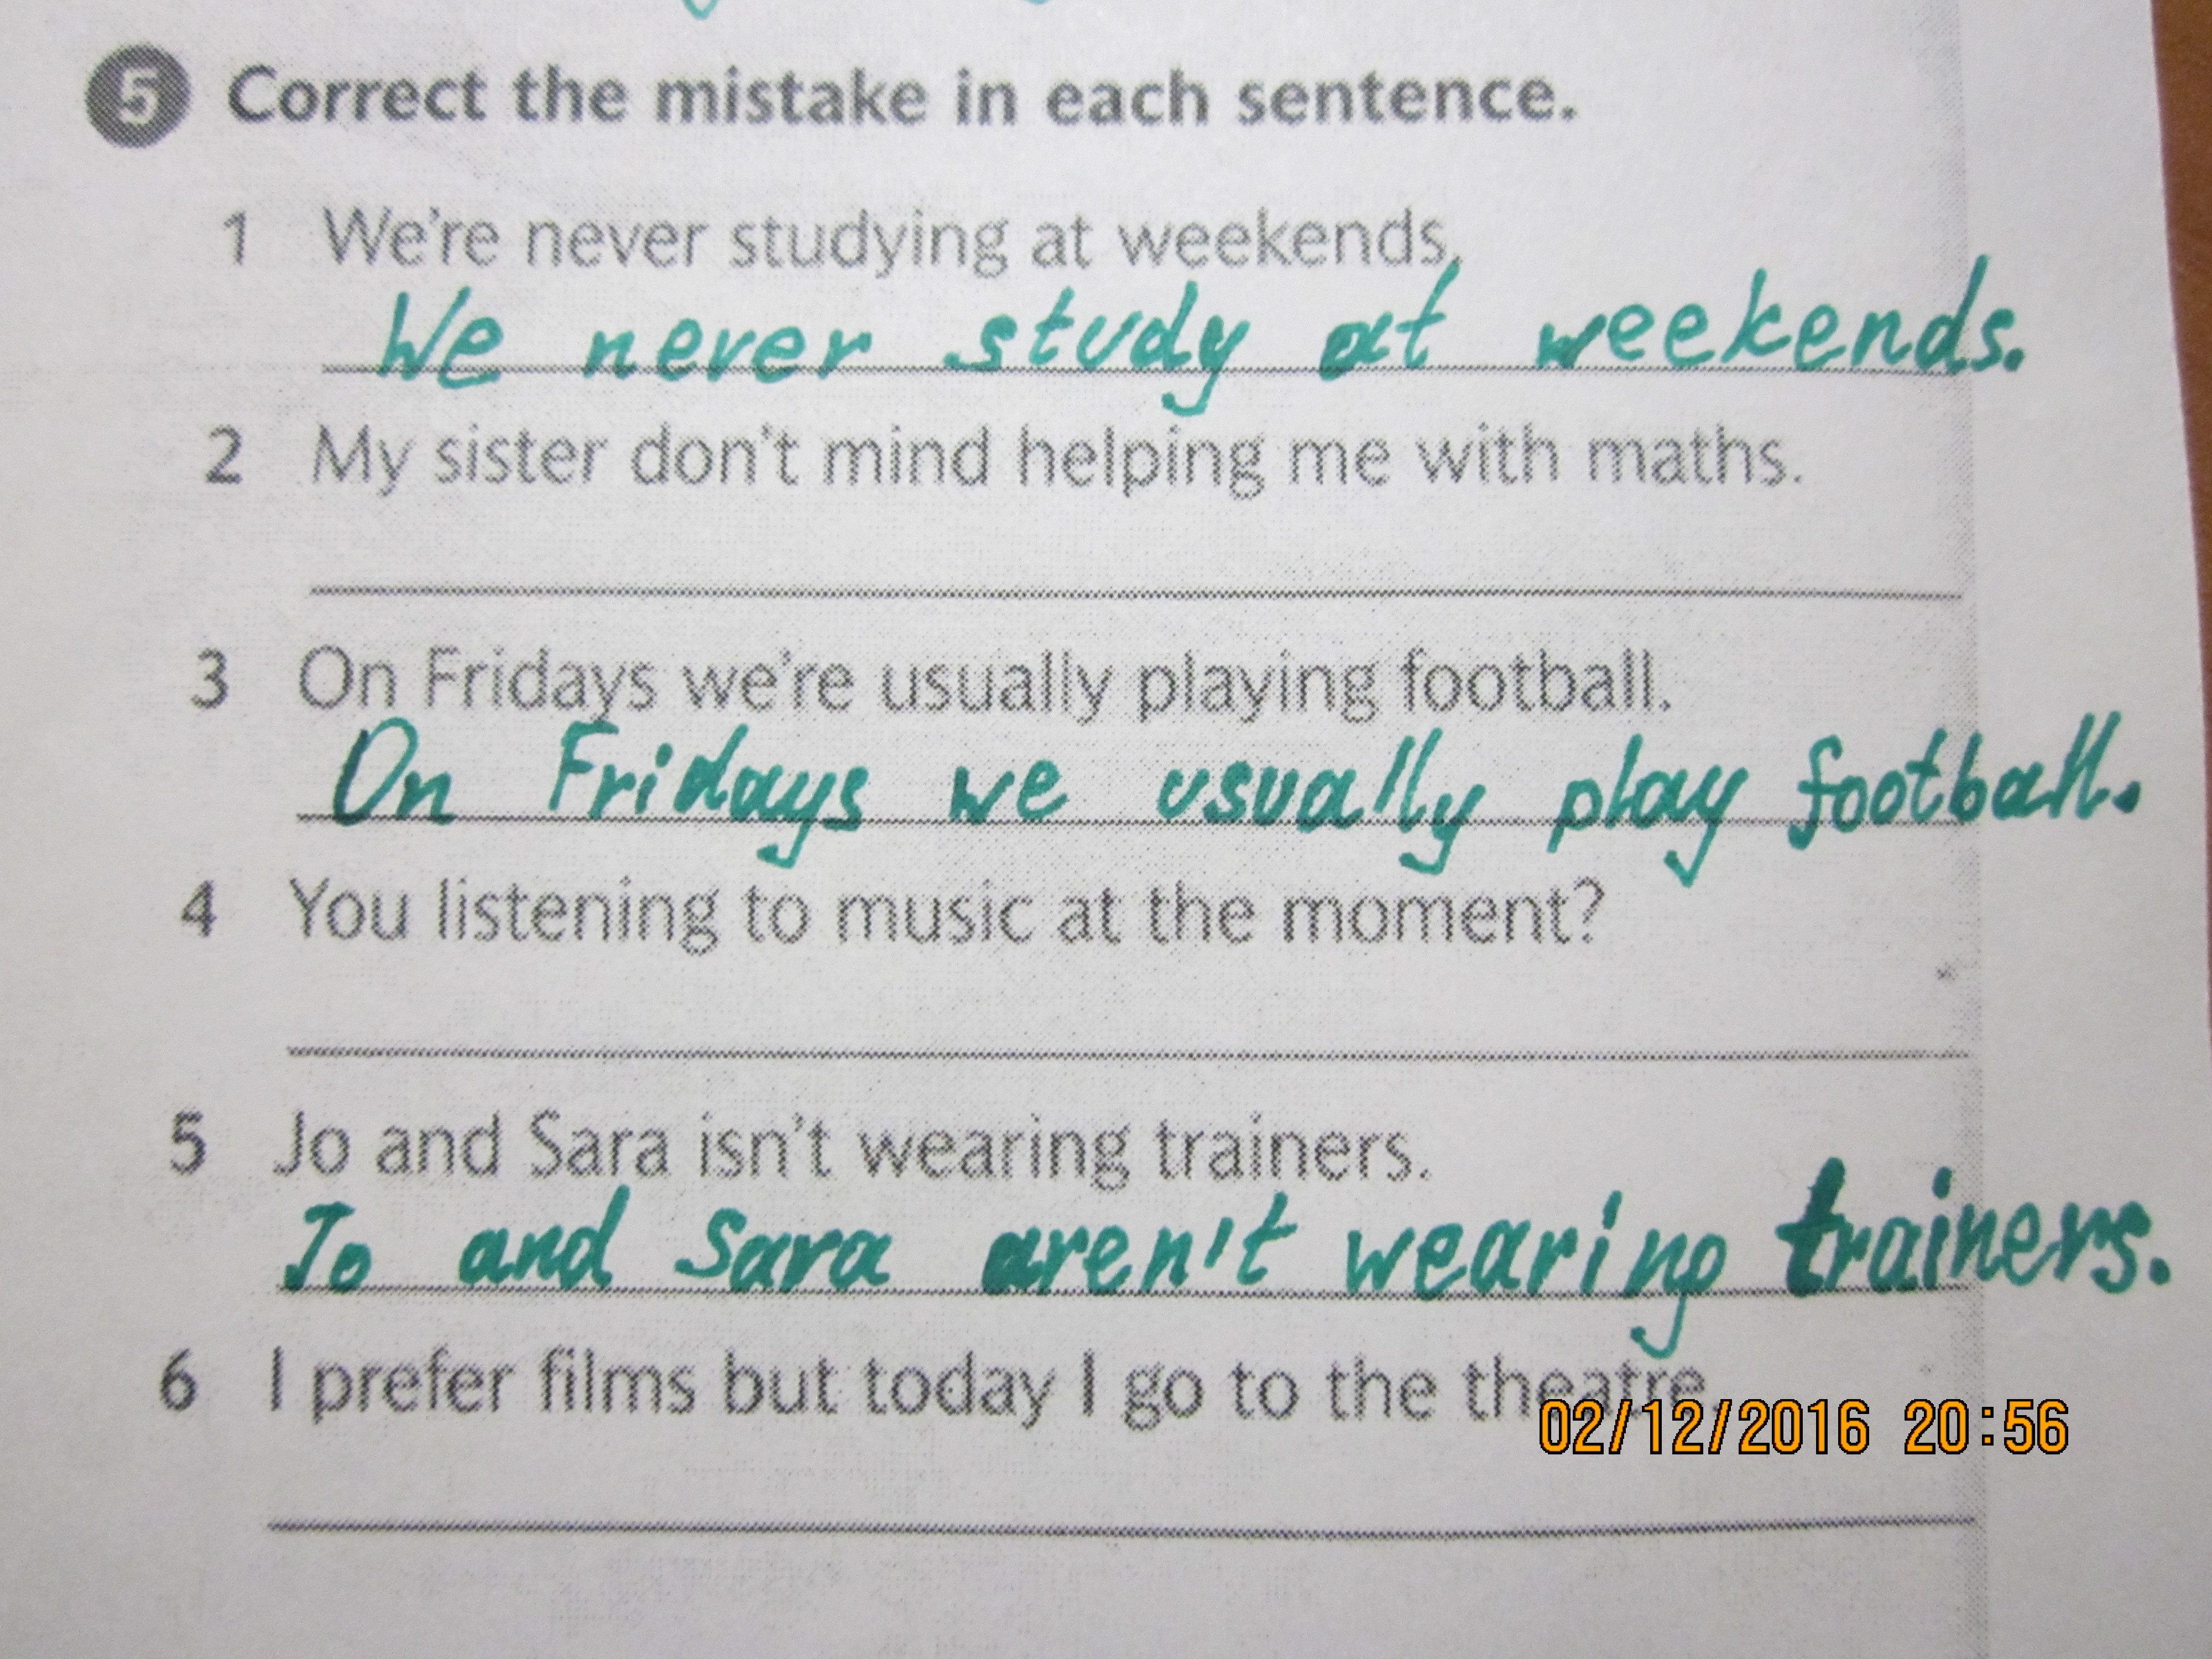 5 Correct the mistake in each sentence.
1 We're never studying at weekends.
We never study at weekends.
2 My sister don't mind helping me with maths.
3 On Fridays we're usually playing football.
On Fridays we usually play football.
4 You listening to music at the moment?
5 Jo and Sara isn't wearing trainers.
Jo and Sara aren't wearing trainers.
6 I prefer films but today I go to the theatre.
02/12/2016 20:56